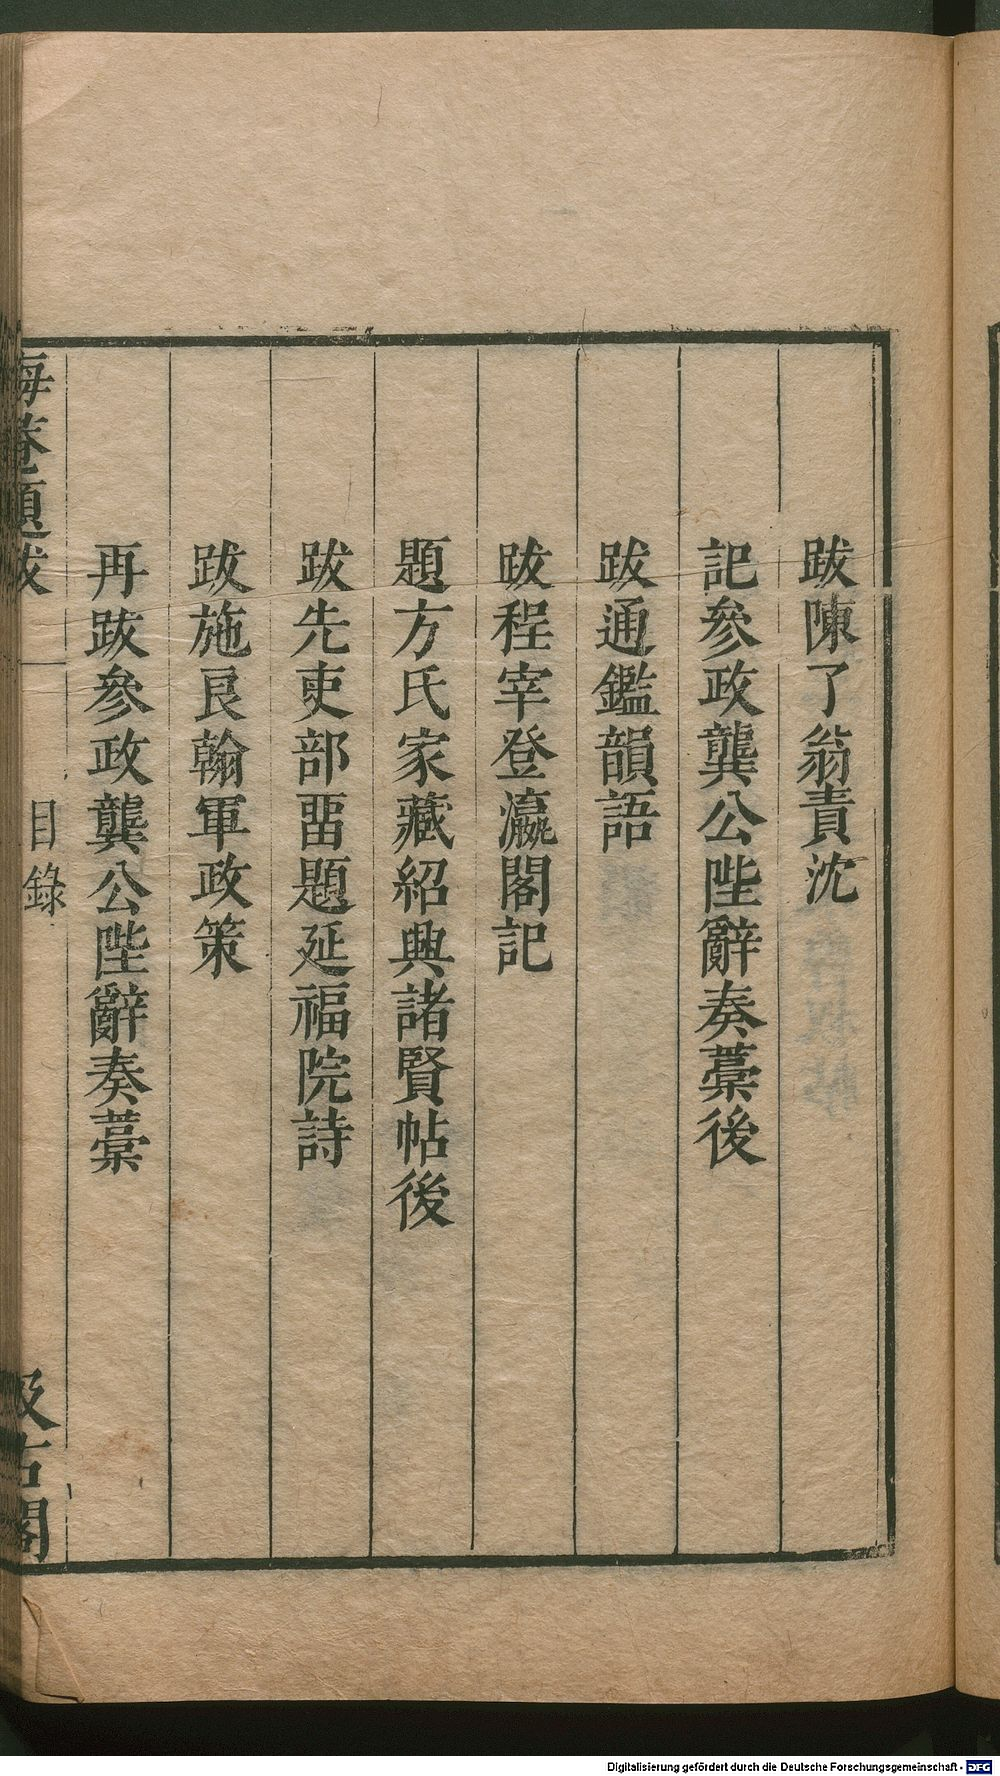 跋陳了翁責沈
記參政龔公陛辭奏藁後
跋通鑑韻語
跋程宰登瀛閣記
題方氏家藏紹興諸賢帖後
跋先吏部畱題延福院詩
跋施良翰軍政策
再跋參政龔公陛辭奏藁
海菴題跋
目錄
汲古閣
Digitalisierung gefördert durch die Deutsche Forschungsgemeinschaft - DFG